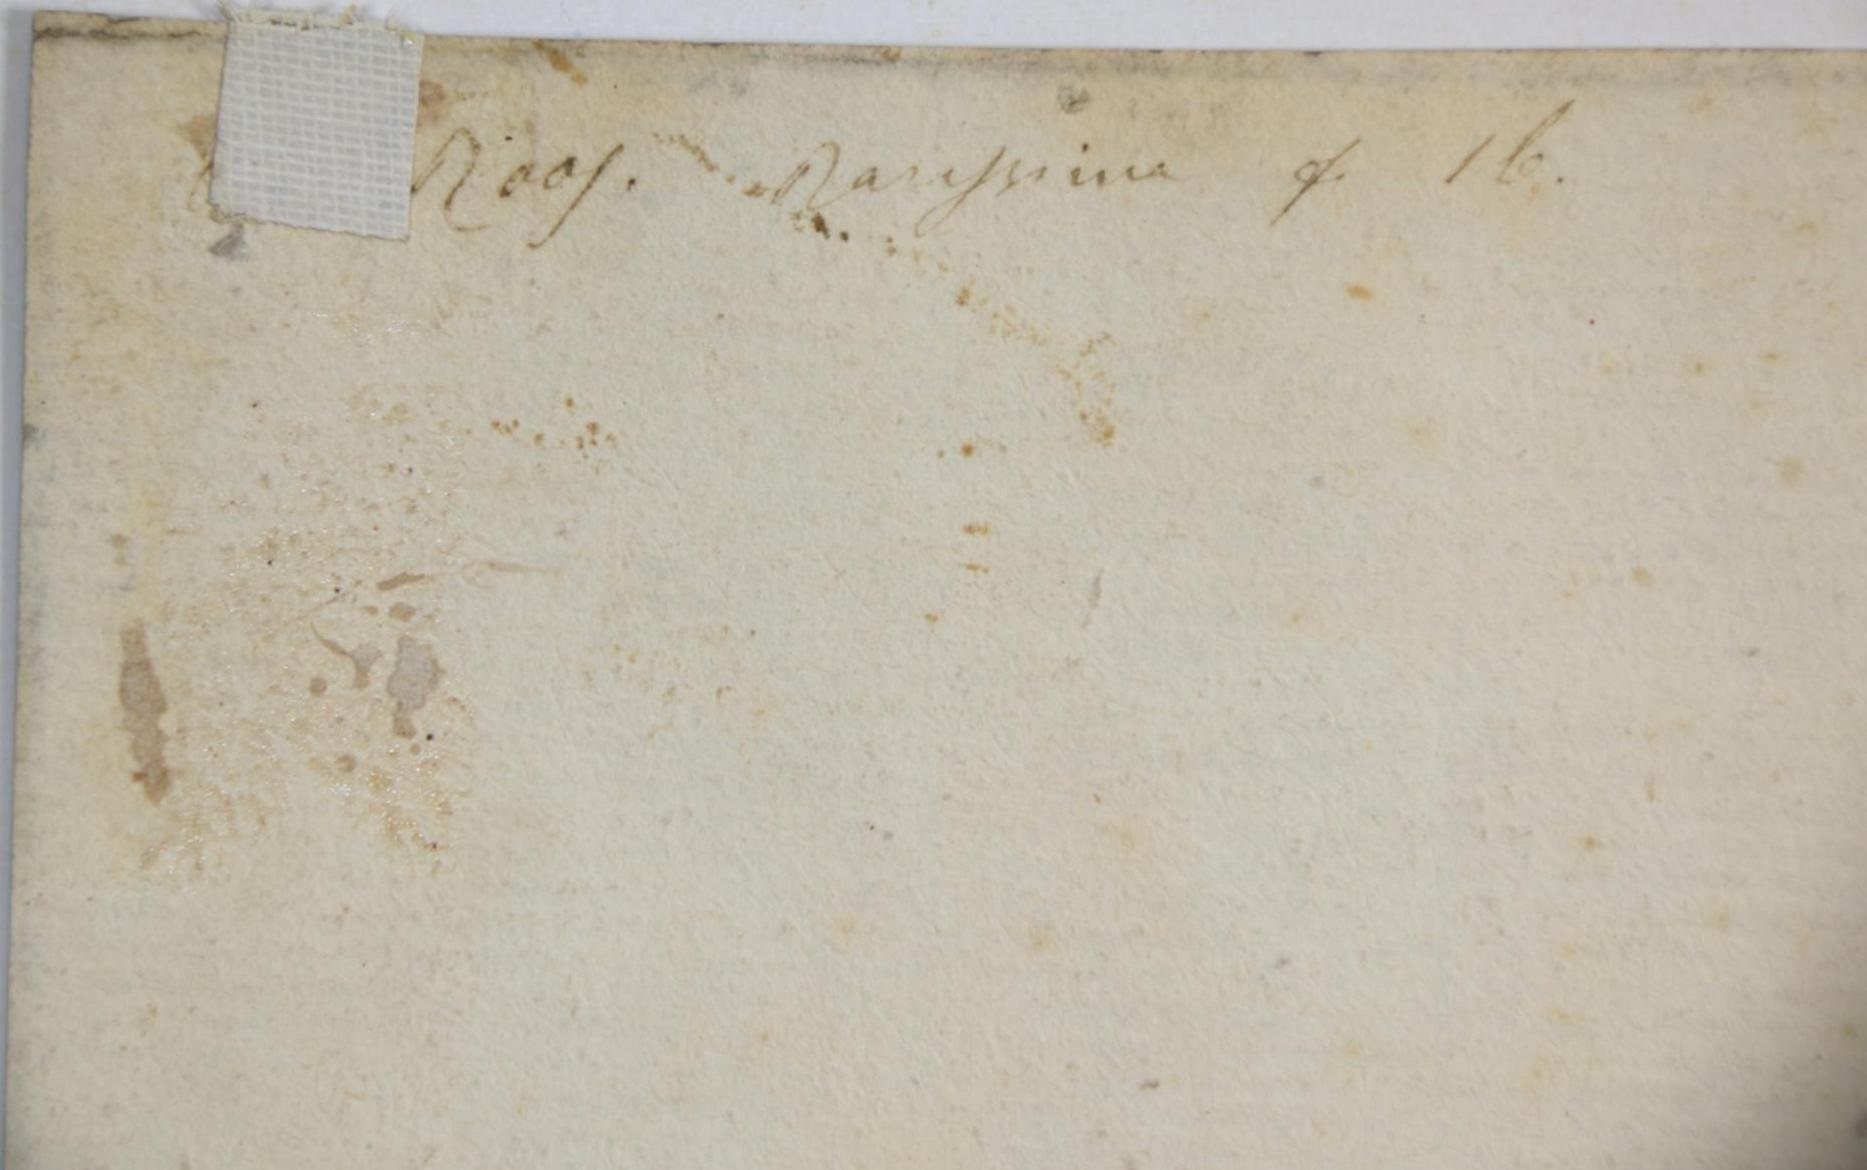 Roos. Rarissima f 16.